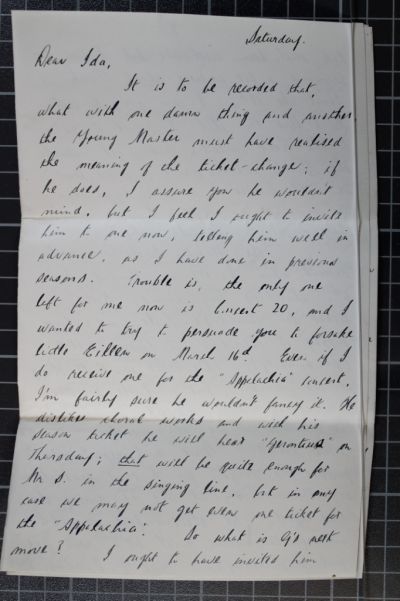 Saturday.
Dear Ida,
It is to be recorded that,
what with one damn thing and another
the Young Master must have realised
the meaning of the ticket-change; if
he does, I assure you he wouldn't
mind, but I feel I ought to invite
him to one now, telling him well in
advance, as I have done in previous
seasons. Trouble is, the only one
left for me now is Concert 20, and I
wanted to try to persuade you to forsake
little Eileen on March 16th. Even if I
do receive one for the "Appelachia" concert,
I'm fairly sure he wouldn't fancy it. He
dislikes choral works and with his
season ticket he will hear "Gerontius" on
Thursday; that will be quite enough for
Mr S. in the singing line, but in any
case we may not get even one ticket for
the "Appelachia". So what is G's next
move?
I ought to have invited him